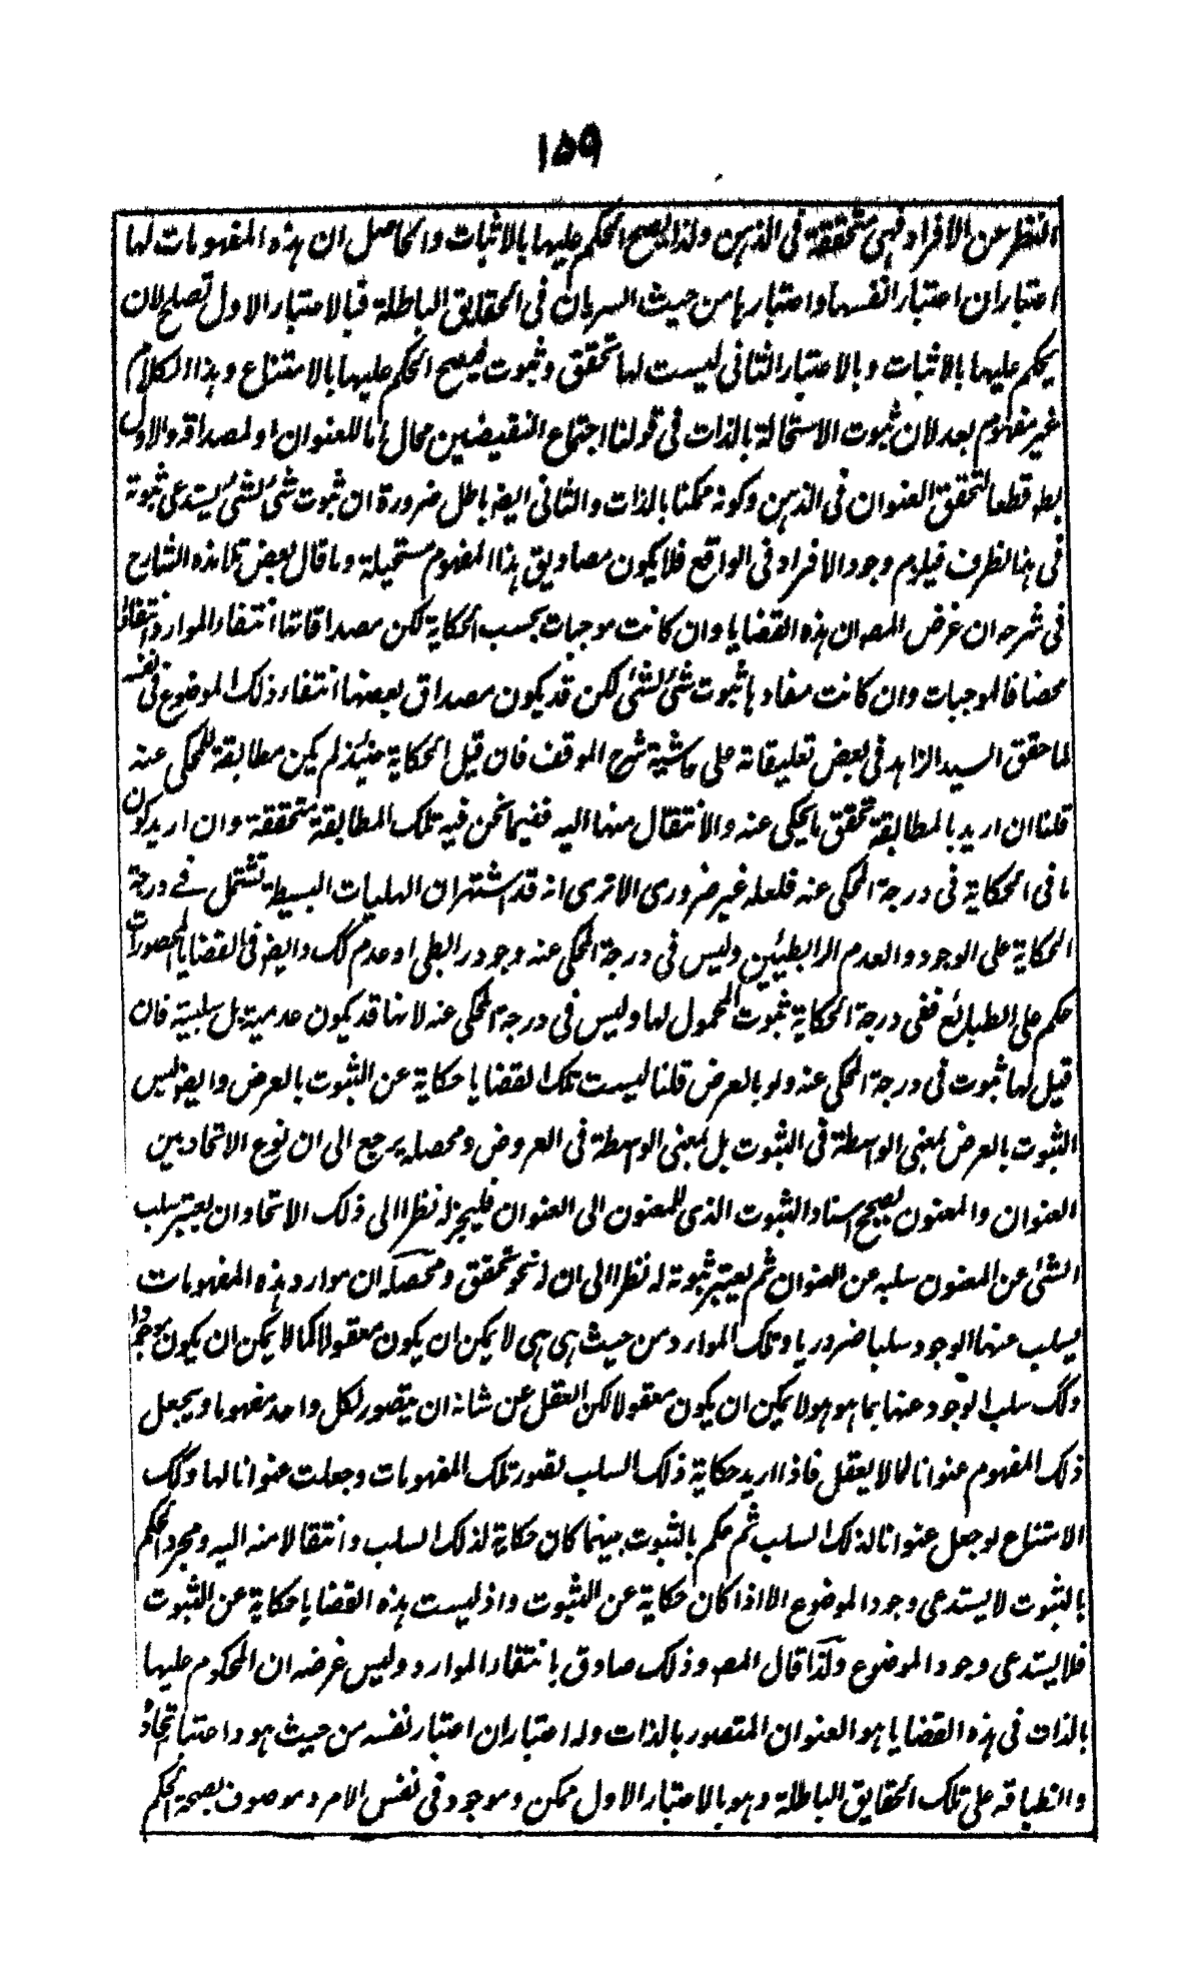 ١٥٩
النظر عن الافراد فهى متحققة فى الذهن ولذا يصح الحكم عليها بالاثبات والحاصل ان هذه المفهومات لها
اعتباران اعتبار انفسها واعتبارها من حيث السريان فى الحقايق الباطلة فبالاعتبار الاول تصلح لان
يحكم عليها بالاثبات وبالاعتبار الثانى ليست لها تحقق وثبوت فيصح الحكم عليها بالامتناع وهذا الكلام
غير مفهوم بعد لان ثبوت الاستحالة بالذات فى قولنا اجتماع النقيضين محال اما للعنوان او لمصداقه والاول
بط قطعا لتحقق العنوان فى الذهن وكونه ممكنا بالذات والثانى ايضا باطل ضرورة ان ثبوت شئ لشئ يستدعى ثبوته
فى هذا الظرف فيلزم وجود الافراد فى الواقع فلا يكون مصاديق هذا المفهوم مستحيلة وما قال بعض تلامذه الشارح
فى شرحه ان غرض المصه ان هذه القضايا وان كانت موجبات بحسب الحكاية لكن مصداقاتها انتفاء الموارد انتفاءً
محضا فالموجبات وان كانت مفادها ثبوت شئ لشئ لكن قد يكون مصداق بعضها انتفاء ذلك الموضوع فى نفسه
لما حقق السيد الزاهد فى بعض تعليقاته على حاشية شرح المواقف فان قيل الحكاية حينئذ لم يكن مطابقة للمحكى عنه
قلنا ان اريد بالمطابقة تحقق ما يحكى عنه والانتقال منها اليه ففيما نحن فيه تلك المطابقة متحققة وان اريد كون
ما فى الحكاية فى درجة المحكى عنه فلعله غير ضرورى الا ترى انه قد اشتهر ان الهليات البسيطة تشتمل فے درجة
الحكاية على الوجود والعدم الرابطيين وليس فى درجة المحكى عنه وجود رابطى او عدم كك وايضا فى القضايا المحصورات
حكم على الطبائع ففى درجة الحكاية ثبوت المحمول لها وليس فى درجة المحكى عنه لانها قد يكون عدمية بل سلبية فان
قيل لها ثبوت فى درجة المحكى عنه ولو بالعرض قلنا ليست تلك القضايا حكاية عن الثبوت بالعرض وايضا ليس
الثبوت بالعرض بمعنى الواسطة فى الثبوت بل بمعنى الواسطة فى العروض ومحصله يرجع الى ان نوع الاتحاد بين
العنوان والمعنون يصحح اسناد الثبوت الذى للمعنون الى العنوان فليجز له نظرا الى ذلك الاتحاد ان يعتبر سلب
الشئ عن المعنون سلبه عن العنوان ثم يعتبر ثبوته له نظرا الى ان له نحو تحقق ومحصله ان موارد هذه المفهومات
يسلب عنها الوجود سلبا ضروريا وتلك الموارد من حيث هى هى لا يمكن ان يكون معقولا كما لا يمكن ان يكون موجودا
وكك سلب الوجود عنها بما هو هو لا يمكن ان يكون معقولا لكن العقل عن شانه ان يتصور لكل واحد مفهوما ويجعل
ذلك المفهوم عنوانا لما لا يعقل فاذا اريد حكاية ذلك السلب تصور تلك المفهومات وجعلت عنوانا لها وكك
الامتناع لو جعل عنوانا لذلك السلب ثم حكم بالثبوت بينهما كان حكاية لذلك السلب وانتقالا منه اليه ومجرد الحكم
بالثبوت لا يستدعى وجود الموضوع الا اذا كان حكاية عن الثبوت واذ ليست هذه القضايا حكاية عن الثبوت
فلا يستدعى وجود الموضوع ولذا قال المصه وذلك صادق بانتفاء الموارد وليس غرضه ان المحكوم عليها
بالذات فى هذه القضايا هو العنوان المتصور بالذات وله اعتباران اعتبار نفسه من حيث هو واعتبار اتحاده
والطباقه على تلك الحقايق الباطلة وهو بالاعتبار الاول ممكن وموجود فى نفس الامر وموصوف بصحة الحكم